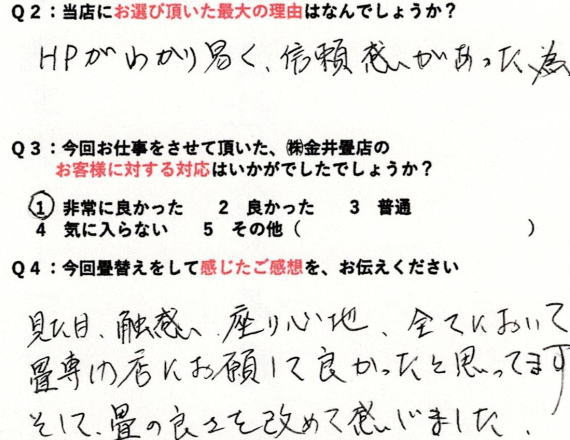 Q2：当店にお選び頂いた最大の理由はなんでしょうか？
HPがわかり易く、信頼感があった為
Q3：今回お仕事をさせて頂いた、㈱金井畳店の
お客様に対する対応はいかがでしたでしょうか？
1 非常に良かった 2 良かった 3 普通
4 気に入らない 5 その他（ ）
Q4：今回畳替えをして感じたご感想を、お伝えください
見た目、触感、座り心地、全てにおいて
畳専門店にお願して良かったと思ってます
そして、畳の良さを改めて感じました。